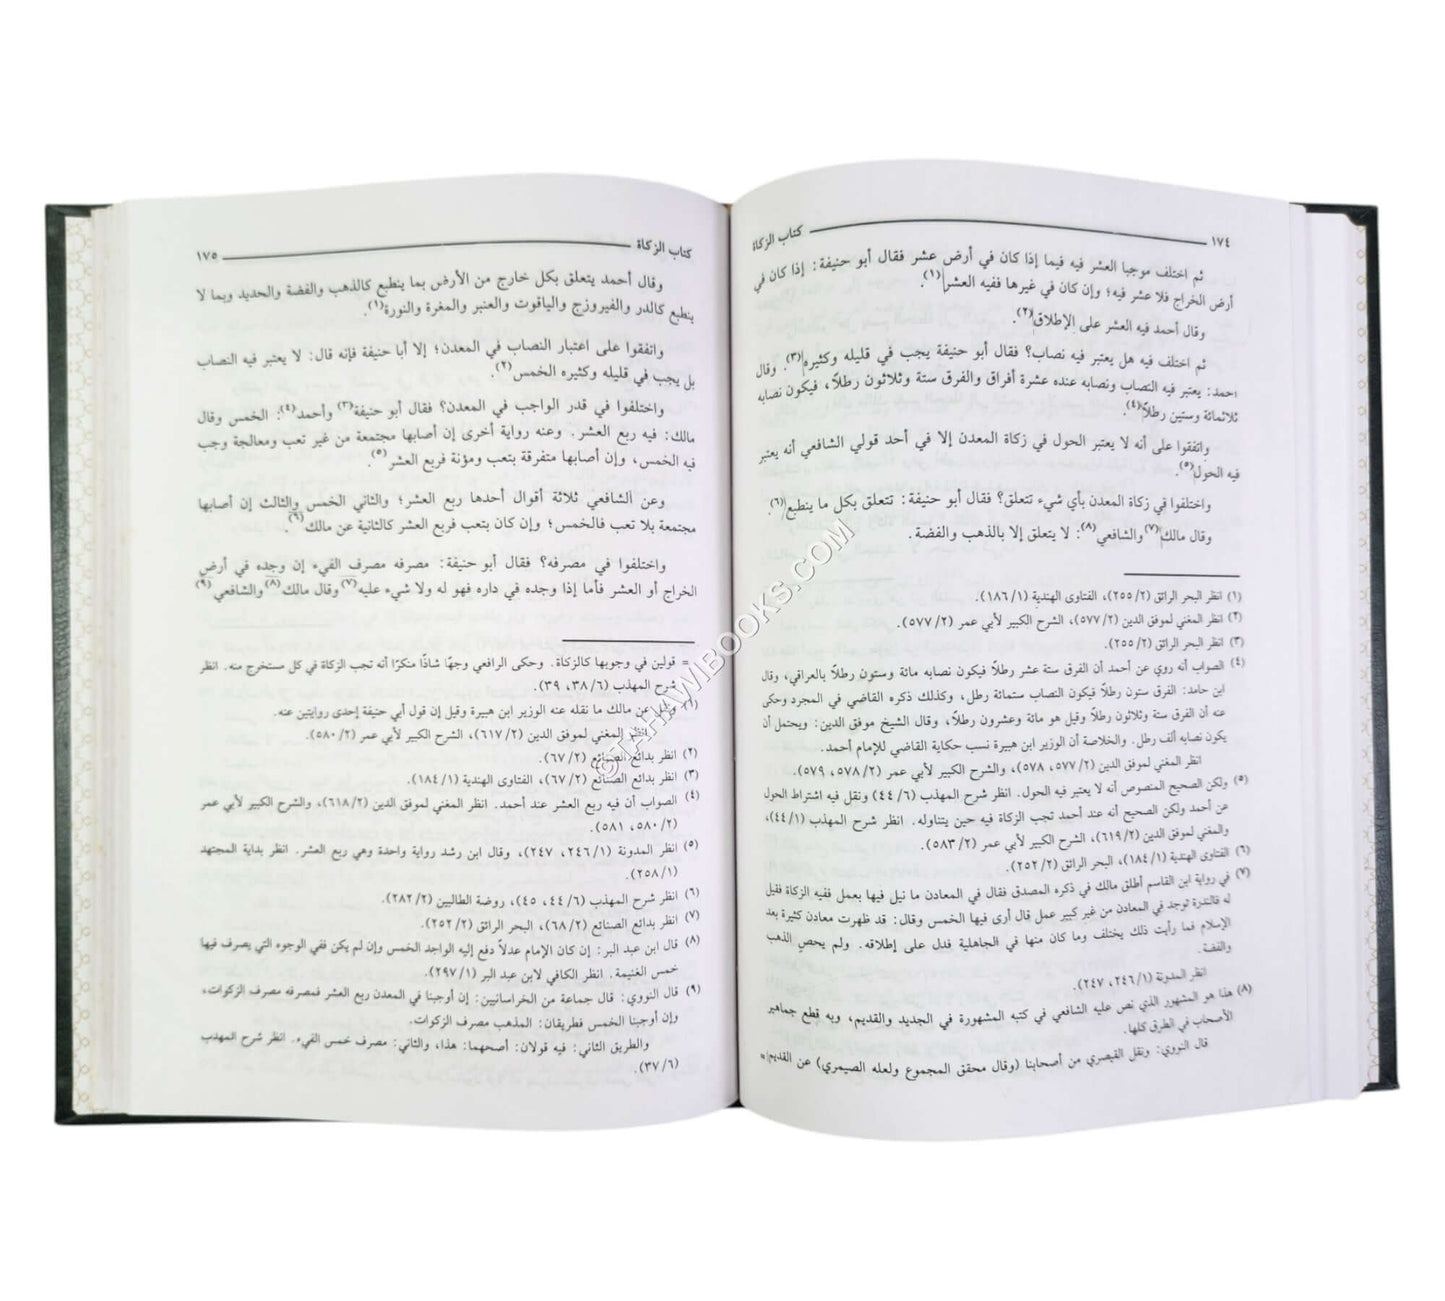 ١٧٤
كتاب الزكاة
ثم اختلف موجبا العشر فيه فيما إذا كان في أرض عشر فقال أبو حنيفة: إذا كان في
أرض الخراج فلا عشر فيه؛ وإن كان في غيرها ففيه العشر(١).
وقال أحمد فيه العشر على الإطلاق(٢).
ثم اختلف فيه هل يعتبر فيه نصاب؟ فقال أبو حنيفة يجب في قليله وكثيره(٣). وقال
احمد: يعتبر فيه النصاب ونصابه عنده عشرة أفراق والفرق ستة وثلاثون رطلاً، فيكون نصابه
ثلاثمائة وستين رطلاً(٤).
واتفقوا على أنه لا يعتبر الحول في زكاة المعدن إلا في أحد قولي الشافعي أنه يعتبر
فيه الحول(٥).
واختلفوا في زكاة المعدن بأي شيء تتعلق؟ فقال أبو حنيفة: تتعلق بكل ما ينطبع(٦).
وقال مالك(٧) والشافعي(٨): لا يتعلق إلا بالذهب والفضة.
(١) انظر البحر الرائق (٢/ ٢٥٥)، الفتاوى الهندية (١/ ١٨٦).
(٢) انظر المغني لموفق الدين (٢/ ٥٧٧)، الشرح الكبير لأبي عمر (٢/ ٥٧٧).
(٣) انظر البحر الرائق (٢/ ٢٥٥).
(٤) الصواب أنه روي عن أحمد أن الفرق ستة عشر رطلاً فيكون نصابه مائة وستون رطلاً بالعراقي، وقال
ابن حامد: الفرق ستون رطلاً فيكون النصاب ستمائة رطل، وكذلك ذكره القاضي في المجرد وحكى
عنه أن الفرق ستة وثلاثون رطلاً وقيل هو مائة وعشرون رطلاً، وقال الشيخ موفق الدين: ويحتمل أن
يكون نصابه ألف رطل. والخلاصة أن الوزير ابن هبيرة نسب حكاية القاضي للإمام أحمد.
انظر المغني لموفق الدين (٢/ ٥٧٧، ٥٧٨)، والشرح الكبير لأبي عمر (٢/ ٥٧٨، ٥٧٩).
(٥) ولكن الصحيح المنصوص أنه لا يعتبر فيه الحول. انظر شرح المهذب (٦/ ٤٤) ونقل فيه اشتراط الحول
عن أحمد ولكن الصحيح أنه عند أحمد تجب الزكاة فيه حين يتناوله. انظر شرح المهذب (١/ ٤٤)،
والمغني لموفق الدين (٢/ ٦١٩)، الشرح الكبير لأبي عمر (٢/ ٥٨٣).
(٦) الفتاوى الهندية (١/ ١٨٤)، البحر الرائق (٢/ ٢٥٢).
(٧) في رواية ابن القاسم أطلق مالك في ذكره المصدق فقال في المعادن ما نيل فيها بعمل ففيه الزكاة فقيل
له فالندرة توجد في المعادن من غير كبير عمل قال أرى فيها الخمس وقال: قد ظهرت معادن كثيرة بعد
الإسلام فما رأيت ذلك يختلف وما كان منها في الجاهلية فدل على إطلاقه. ولم يحص الذهب
والفضة.
انظر المدونة (١/ ٢٤٦، ٢٤٧).
(٨) هذا هو المشهور الذي نص عليه الشافعي في كتبه المشهورة في الجديد والقديم، وبه قطع جماهير
الأصحاب في الطرق كلها.
قال النووي: ونقل القيصري من أصحابنا (وقال محقق المجموع ولعله الصيمري) عن القديم =
كتاب الزكاة
١٧٥
وقال أحمد يتعلق بكل خارج من الأرض بما ينطبع كالذهب والفضة والحديد وبما لا
ينطبع كالدر والفيروزج والياقوت والعنبر والمغرة والنورة(١).
واتفقوا على اعتبار النصاب في المعدن؛ إلا أبا حنيفة فإنه قال: لا يعتبر فيه النصاب
بل يجب في قليله وكثيره الخمس(٢).
واختلفوا في قدر الواجب في المعدن؟ فقال أبو حنيفة(٣) وأحمد(٤): الخمس وقال
مالك: فيه ربع العشر. وعنه رواية أخرى إن أصابها مجتمعة من غير تعب ومعالجة وجب
فيه الخمس، وإن أصابها متفرقة بتعب ومؤنة فربع العشر(٥).
وعن الشافعي ثلاثة أقوال أحدها ربع العشر؛ والثاني الخمس والثالث إن أصابها
مجتمعة بلا تعب فالخمس؛ وإن كان بتعب فربع العشر كالثانية عن مالك(٦).
واختلفوا في مصرفه؟ فقال أبو حنيفة: مصرفه مصرف الفيء إن وجده في أرض
الخراج أو العشر فأما إذا وجده في داره فهو له ولا شيء عليه(٧) وقال مالك(٨) والشافعي(٩)
= قولين في وجوبها كالزكاة. وحكى الرافعي وجهًا شاذًا منكرًا أنه تجب الزكاة في كل مستخرج منه. انظر
شرح المهذب (٦/ ٣٨، ٣٩).
(١) وقيل عن مالك ما نقله عنه الوزير ابن هبيرة وقيل إن قول أبي حنيفة إحدى روايتين عنه.
انظر المغني لموفق الدين (٢/ ٦١٧)، الشرح الكبير لأبي عمر (٢/ ٥٨٠).
(٢) انظر بدائع الصنائع (٢/ ٦٧).
(٣) انظر بدائع الصنائع (٢/ ٦٧)، الفتاوى الهندية (١/ ١٨٤).
(٤) الصواب أن فيه ربع العشر عند أحمد. انظر المغني لموفق الدين (٢/ ٦١٨)، والشرح الكبير لأبي عمر
(٢/ ٥٨٠، ٥٨١).
(٥) انظر المدونة (١/ ٢٤٦، ٢٤٧)، وقال ابن رشد رواية واحدة وهي ربع العشر. انظر بداية المجتهد
(١/ ٢٥٨).
(٦) انظر شرح المهذب (٦/ ٤٤، ٤٥)، روضة الطالبين (٢/ ٢٨٢).
(٧) انظر بدائع الصنائع (٢/ ٦٨)، البحر الرائق (٢/ ٢٥٢).
(٨) قال ابن عبد البر: إن كان الإمام عدلاً دفع إليه الواجد الخمس وإن لم يكن ففي الوجوه التي يصرف فيها
خمس الغنيمة. انظر الكافي لابن عبد البر (١/ ٢٩٧).
(٩) قال النووي: قال جماعة من الخراسانيين: إن أوجبنا في المعدن ربع العشر فمصرفه مصرف الزكوات،
وإن أوجبنا الخمس فطريقان: المذهب مصرف الزكوات.
والطريق الثاني: فيه قولان: أصحهما: هذا، والثاني: مصرف خمس الفيء. انظر شرح المهدب
(٦/ ٣٧).
©TAHAWIBOOKS.COM